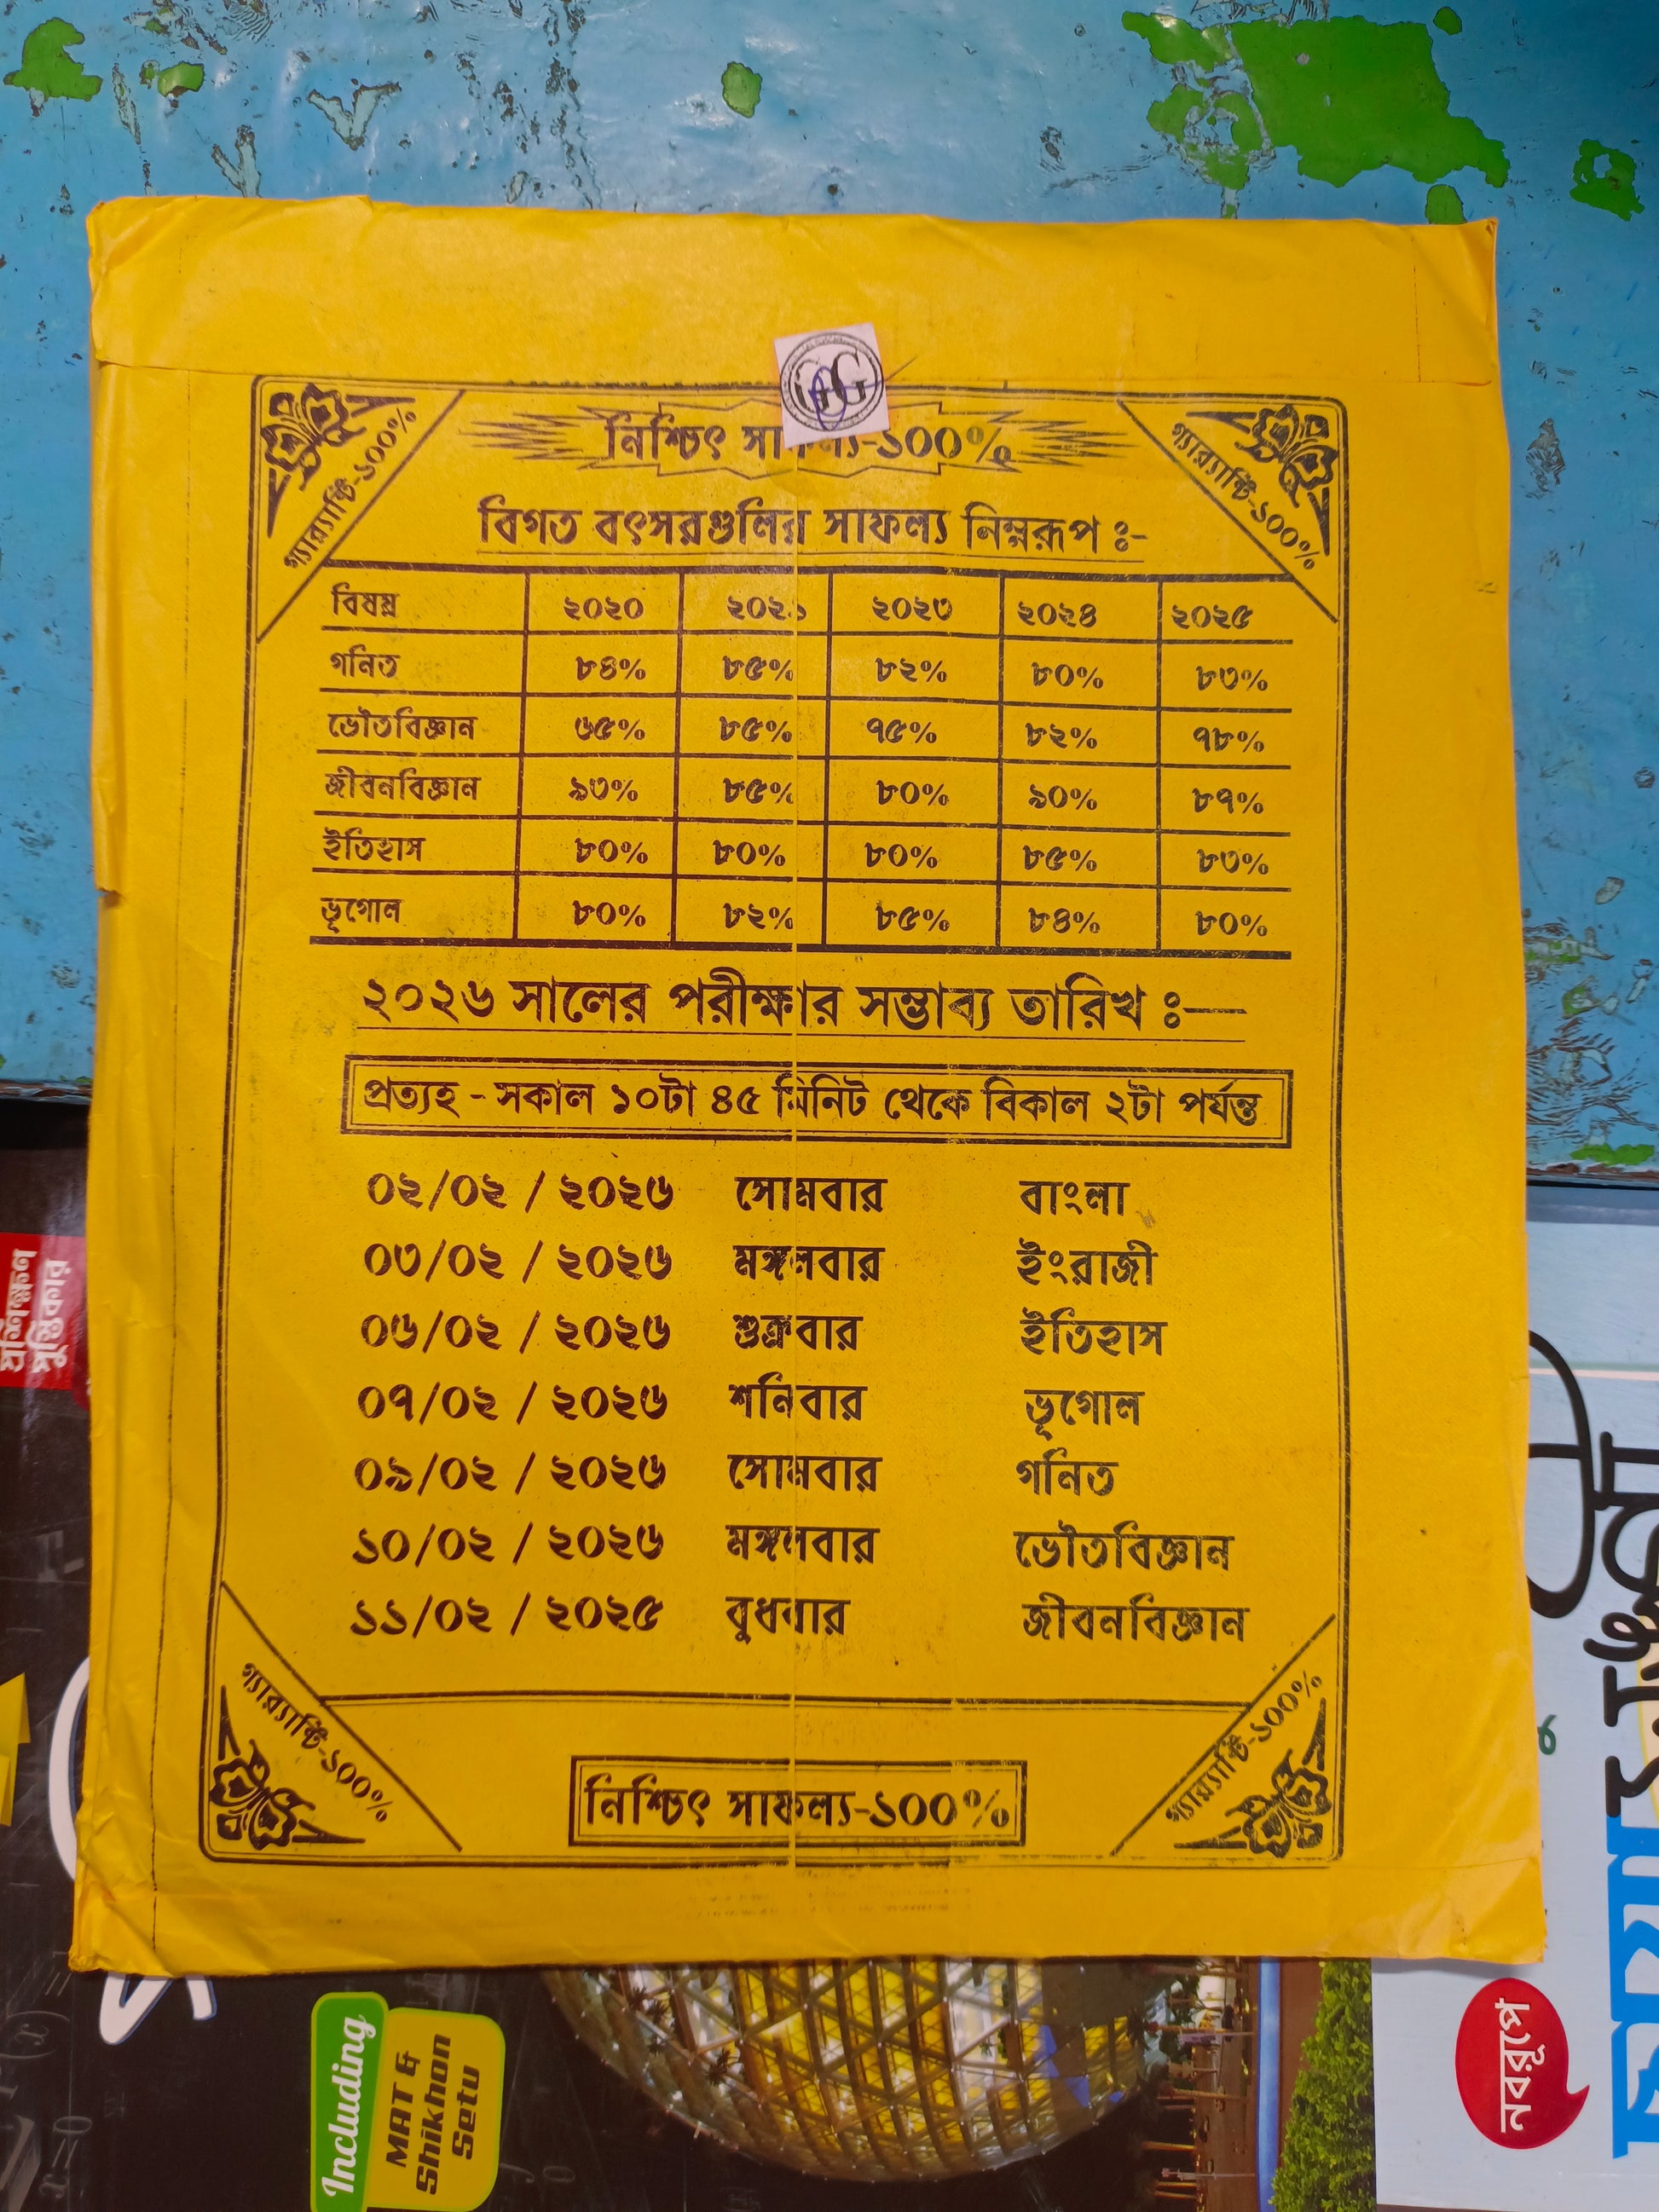 নিশ্চিৎ সাফল্য-১০০%
গ্যার‍্যান্টি-১০০%
গ্যার‍্যান্টি-১০০%
বিগত বৎসরগুলির সাফল্য নিম্নরূপ ঃ-
বিষয় ২০২০ ২০২১ ২০২৩ ২০২৪ ২০২৫
গনিত ৮৪% ৮৫% ৮২% ৮০% ৮৩%
ভৌতবিজ্ঞান ৬৫% ৮৫% ৭৫% ৮২% ৭৮%
জীবনবিজ্ঞান ৯৩% ৮৫% ৮০% ৯০% ৮৭%
ইতিহাস ৮০% ৮০% ৮০% ৮৫% ৮৩%
ভূগোল ৮০% ৮২% ৮৫% ৮৪% ৮০%
২০২৬ সালের পরীক্ষার সম্ভাব্য তারিখ ঃ—
প্রত্যহ - সকাল ১০টা ৪৫ মিনিট থেকে বিকাল ২টা পর্যন্ত
০২/০২ / ২০২৬ সোমবার বাংলা
০৩/০২ / ২০২৬ মঙ্গলবার ইংরাজী
০৬/০২ / ২০২৬ শুক্রবার ইতিহাস
০৭/০২ / ২০২৬ শনিবার ভূগোল
০৯/০২ / ২০২৬ সোমবার গনিত
১০/০২ / ২০২৬ মঙ্গলবার ভৌতবিজ্ঞান
১১/০২ / ২০২৫ বুধবার জীবনবিজ্ঞান
গ্যার‍্যান্টি-১০০%
গ্যার‍্যান্টি-১০০%
নিশ্চিৎ সাফল্য-১০০%
প্রশিক্ষণ
পুস্তিকার
Including
MAT &
Shikhon
Setu
নবরূপে
x=0